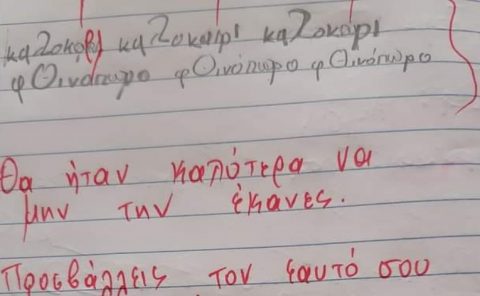 καλοκαιρι καλοκαιρι καλοκαιρι
φθινόπωρο φθινόπωρο φθινόπωρο
Θα ήταν καλύτερα να
μην την έκανες.
Προσβάλλεις τον εαυτό σου